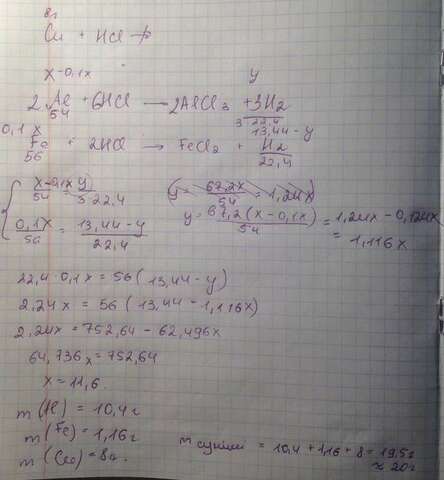 8г
Cu + HCl ↛
x-0,1x y
2Al + 6HCl → 2AlCl₃ + 3H₂
54 3·22,4
0,1x 13,44-y
Fe + 2HCl → FeCl₂ + H₂
56 22,4
x-0,1x / 54 = y / 3·22,4 (y = 67,2x / 54 = 1,24x)
y = 67,2(x-0,1x) / 54 = 1,24x - 0,124x
0,1x / 56 = 13,44-y / 22,4 = 1,116x
22,4·0,1x = 56(13,44-y)
2,24x = 56(13,44-1,116x)
2,24x = 752,64 - 62,496x
64,736x = 752,64
x = 11,6
m(Al) = 10,4г
m(Fe) = 1,16г
m(Cu) = 8г. m сушіші = 10,4 + 1,16 + 8 = 19,5г
≈ 20г